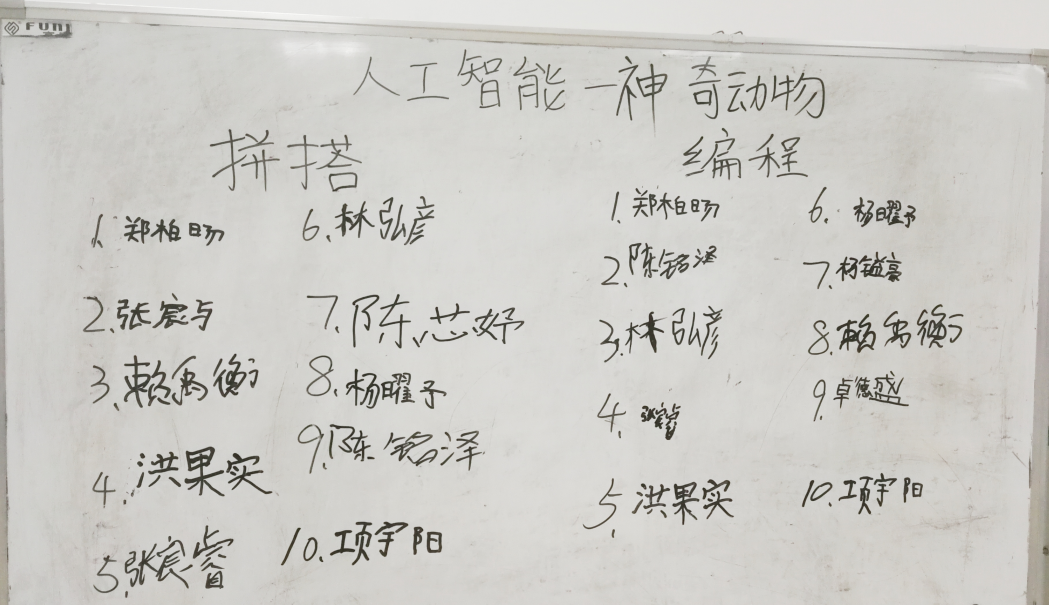 FUNJ
人工智能—神奇动物
拼搭
1. 郑柏旸
6. 林弘彦
2. 张宸与
7. 陈芯妤
3. 赖禹衡
8. 杨曜予
4. 洪果实
9. 陈铭泽
5. 张宸睿
10. 项宇阳
编程
1. 郑柏旸
6. 杨曜予
2. 陈铭泽
7. 杨镒豪
3. 林弘彦
8. 赖禹衡
4. 张宸睿
9. 卓德盛
5. 洪果实
10. 项宇阳